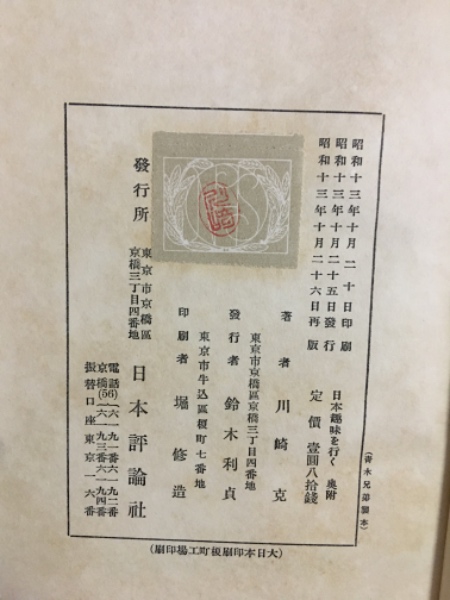 昭和十三年十月二十日印刷
昭和十三年十月二十五日發行
昭和十三年十月二十六日再版
日本趣味を行く 奥附
定價壹圓八拾錢
著者 川崎克
東京市京橋區京橋三丁目四番地
發行者 鈴木利貞
東京市牛込區榎町七番地
印刷者 堀修造
發行所
東京市京橋區
京橋三丁目四番地
日本評論社
電話
京橋(56)
六一九一番六一九二番
六一九三番六一九四番
振替口座東京一六番
(青木兄弟製本)
(大日本印刷榎町工場印刷)